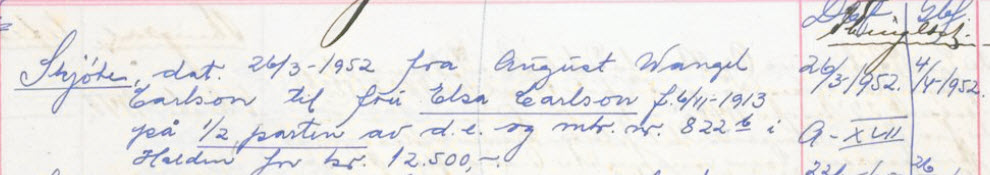 Dat. Gbf.
Skjöte, dat. 26/3-1952 fra August Wangel 26/3-1952. 4/4-1952.
Carlson til fru Elsa Carlson f. 6/11-1913
på 1/2 parten av d.e. og mtr. nr. 822 b i A-XVII
Halden for kr. 12.500,-.